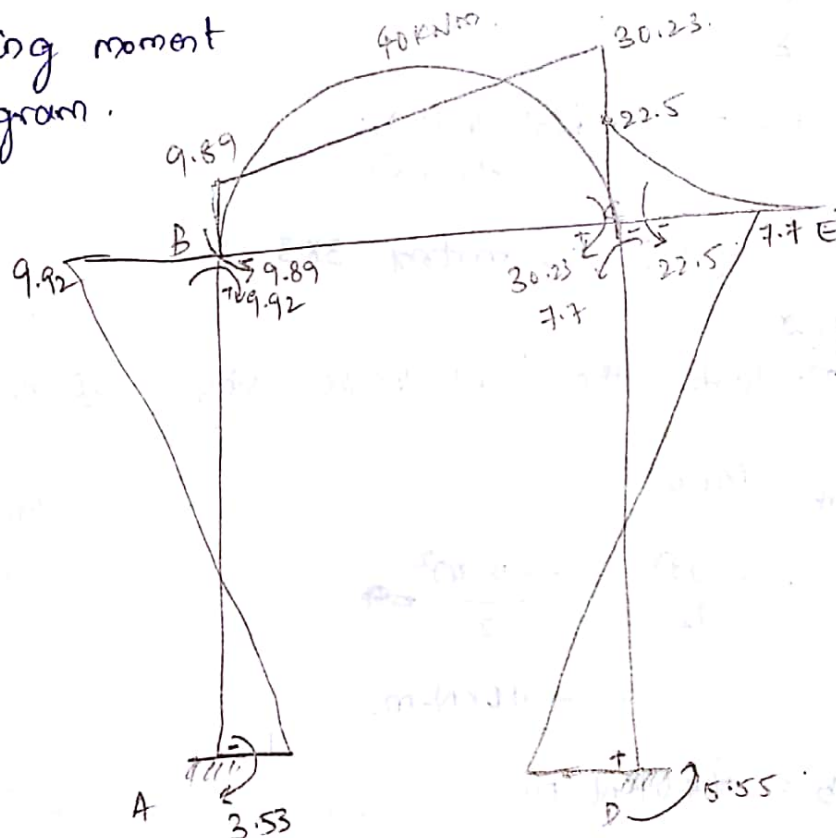 ing moment
gram.
40KNm.
30.23.
22.5
9.89
B
9.92
9.89
9.92
30.23
7.7
22.5
7.7 E
A
3.53
D
5.55